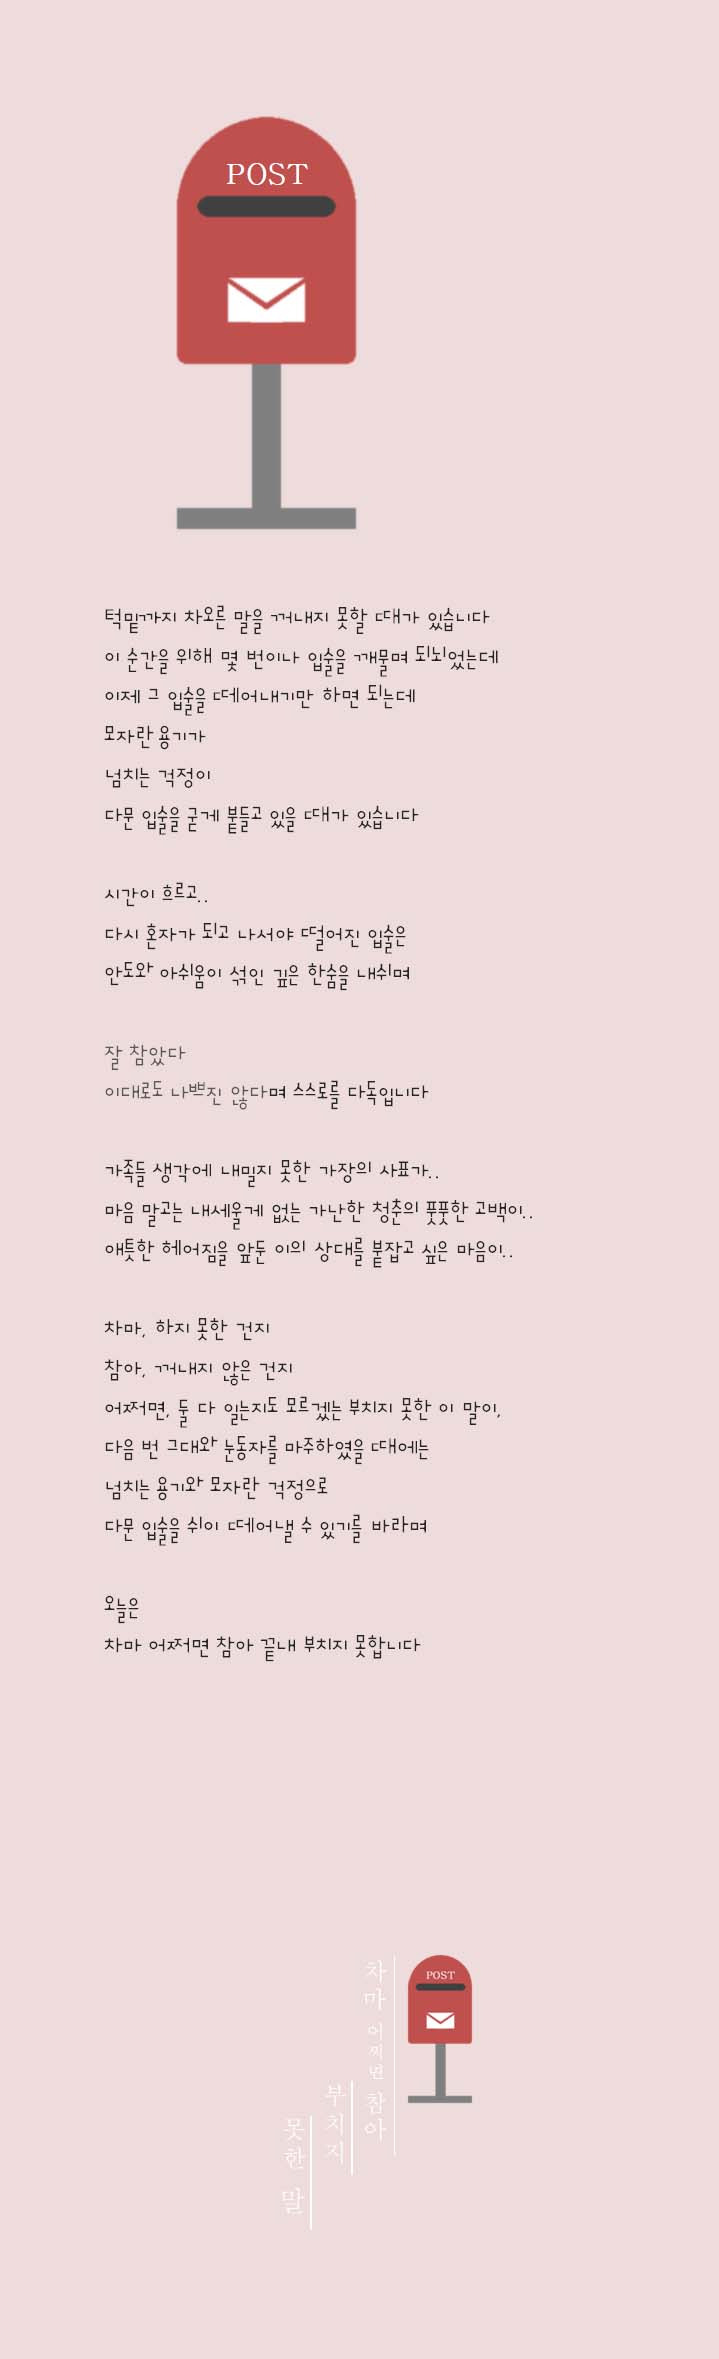 POST
턱밑까지 차오른 말을 꺼내지 못할 때가 있습니다
이 순간을 위해 몇 번이나 입술을 깨물며 되뇌었는데
이제 그 입술을 떼어내기만 하면 되는데
모자란 용기가
넘치는 걱정이
다문 입술을 굳게 붙들고 있을 때가 있습니다
시간이 흐르고..
다시 혼자가 되고 나서야 떨어진 입술은
안도와 아쉬움이 섞인 깊은 한숨을 내쉬며
잘 참았다
이대로도 나쁘진 않다며 스스로를 다독입니다
가족들 생각에 내밀지 못한 가장의 사표가..
마음 말고는 내세울게 없는 가난한 청춘의 풋풋한 고백이..
애틋한 헤어짐을 앞둔 이의 상대를 붙잡고 싶은 마음이..
차마, 하지 못한 건지
참아, 꺼내지 않은 건지
어쩌면, 둘 다 일는지도 모르겠는 부치지 못한 이 말이,
다음 번 그대와 눈동자를 마주하였을 때에는
넘치는 용기와 모자란 걱정으로
다문 입술을 쉬이 떼어낼 수 있기를 바라며
오늘은
차마 어쩌면 참아 끝내 부치지 못합니다
POST
차마 어쩌면 참아
부치지
못한 말